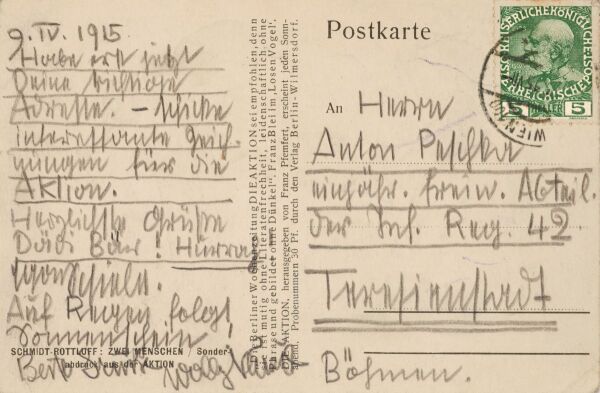 9. IV. 1915.
Habe erst jetzt
Deine richtige
Adresse. – Schicke
interessante Zeich-
nungen für die
Aktion.
Herzlichste Grüße
Hurra!
Egon Schiele.
Auf Regen folgt
Sonnenschein!
SCHMIDT-ROTTLUFF: ZWEI MENSCHEN / Sonder-
abdruck aus der AKTION
„Die Berliner Wochenzeitung DIE AKTION sei empfohlen, denn
sie ist mutig ohne Literatenfrechheit, leidenschaftlich ohne
Phrase und gebildet ohne Dünkel“. Franz Blei im „Losen Vogel“.
DIE AKTION, herausgegeben von Franz Pfemfert, erscheint jeden Sonn-
abend. Probenummern 30 Pf. durch den Verlag Berlin-Wilmersdorf.
Postkarte
KAISERLICHE KÖNIGLICHE
ÖSTERREICHISCHE POST
5 HELLER 5
WIEN
An Herrn
Anton Peschka
einjähr. freiw. Abteil.
der Inf. Reg. 42
Teresienstadt
Böhmen.